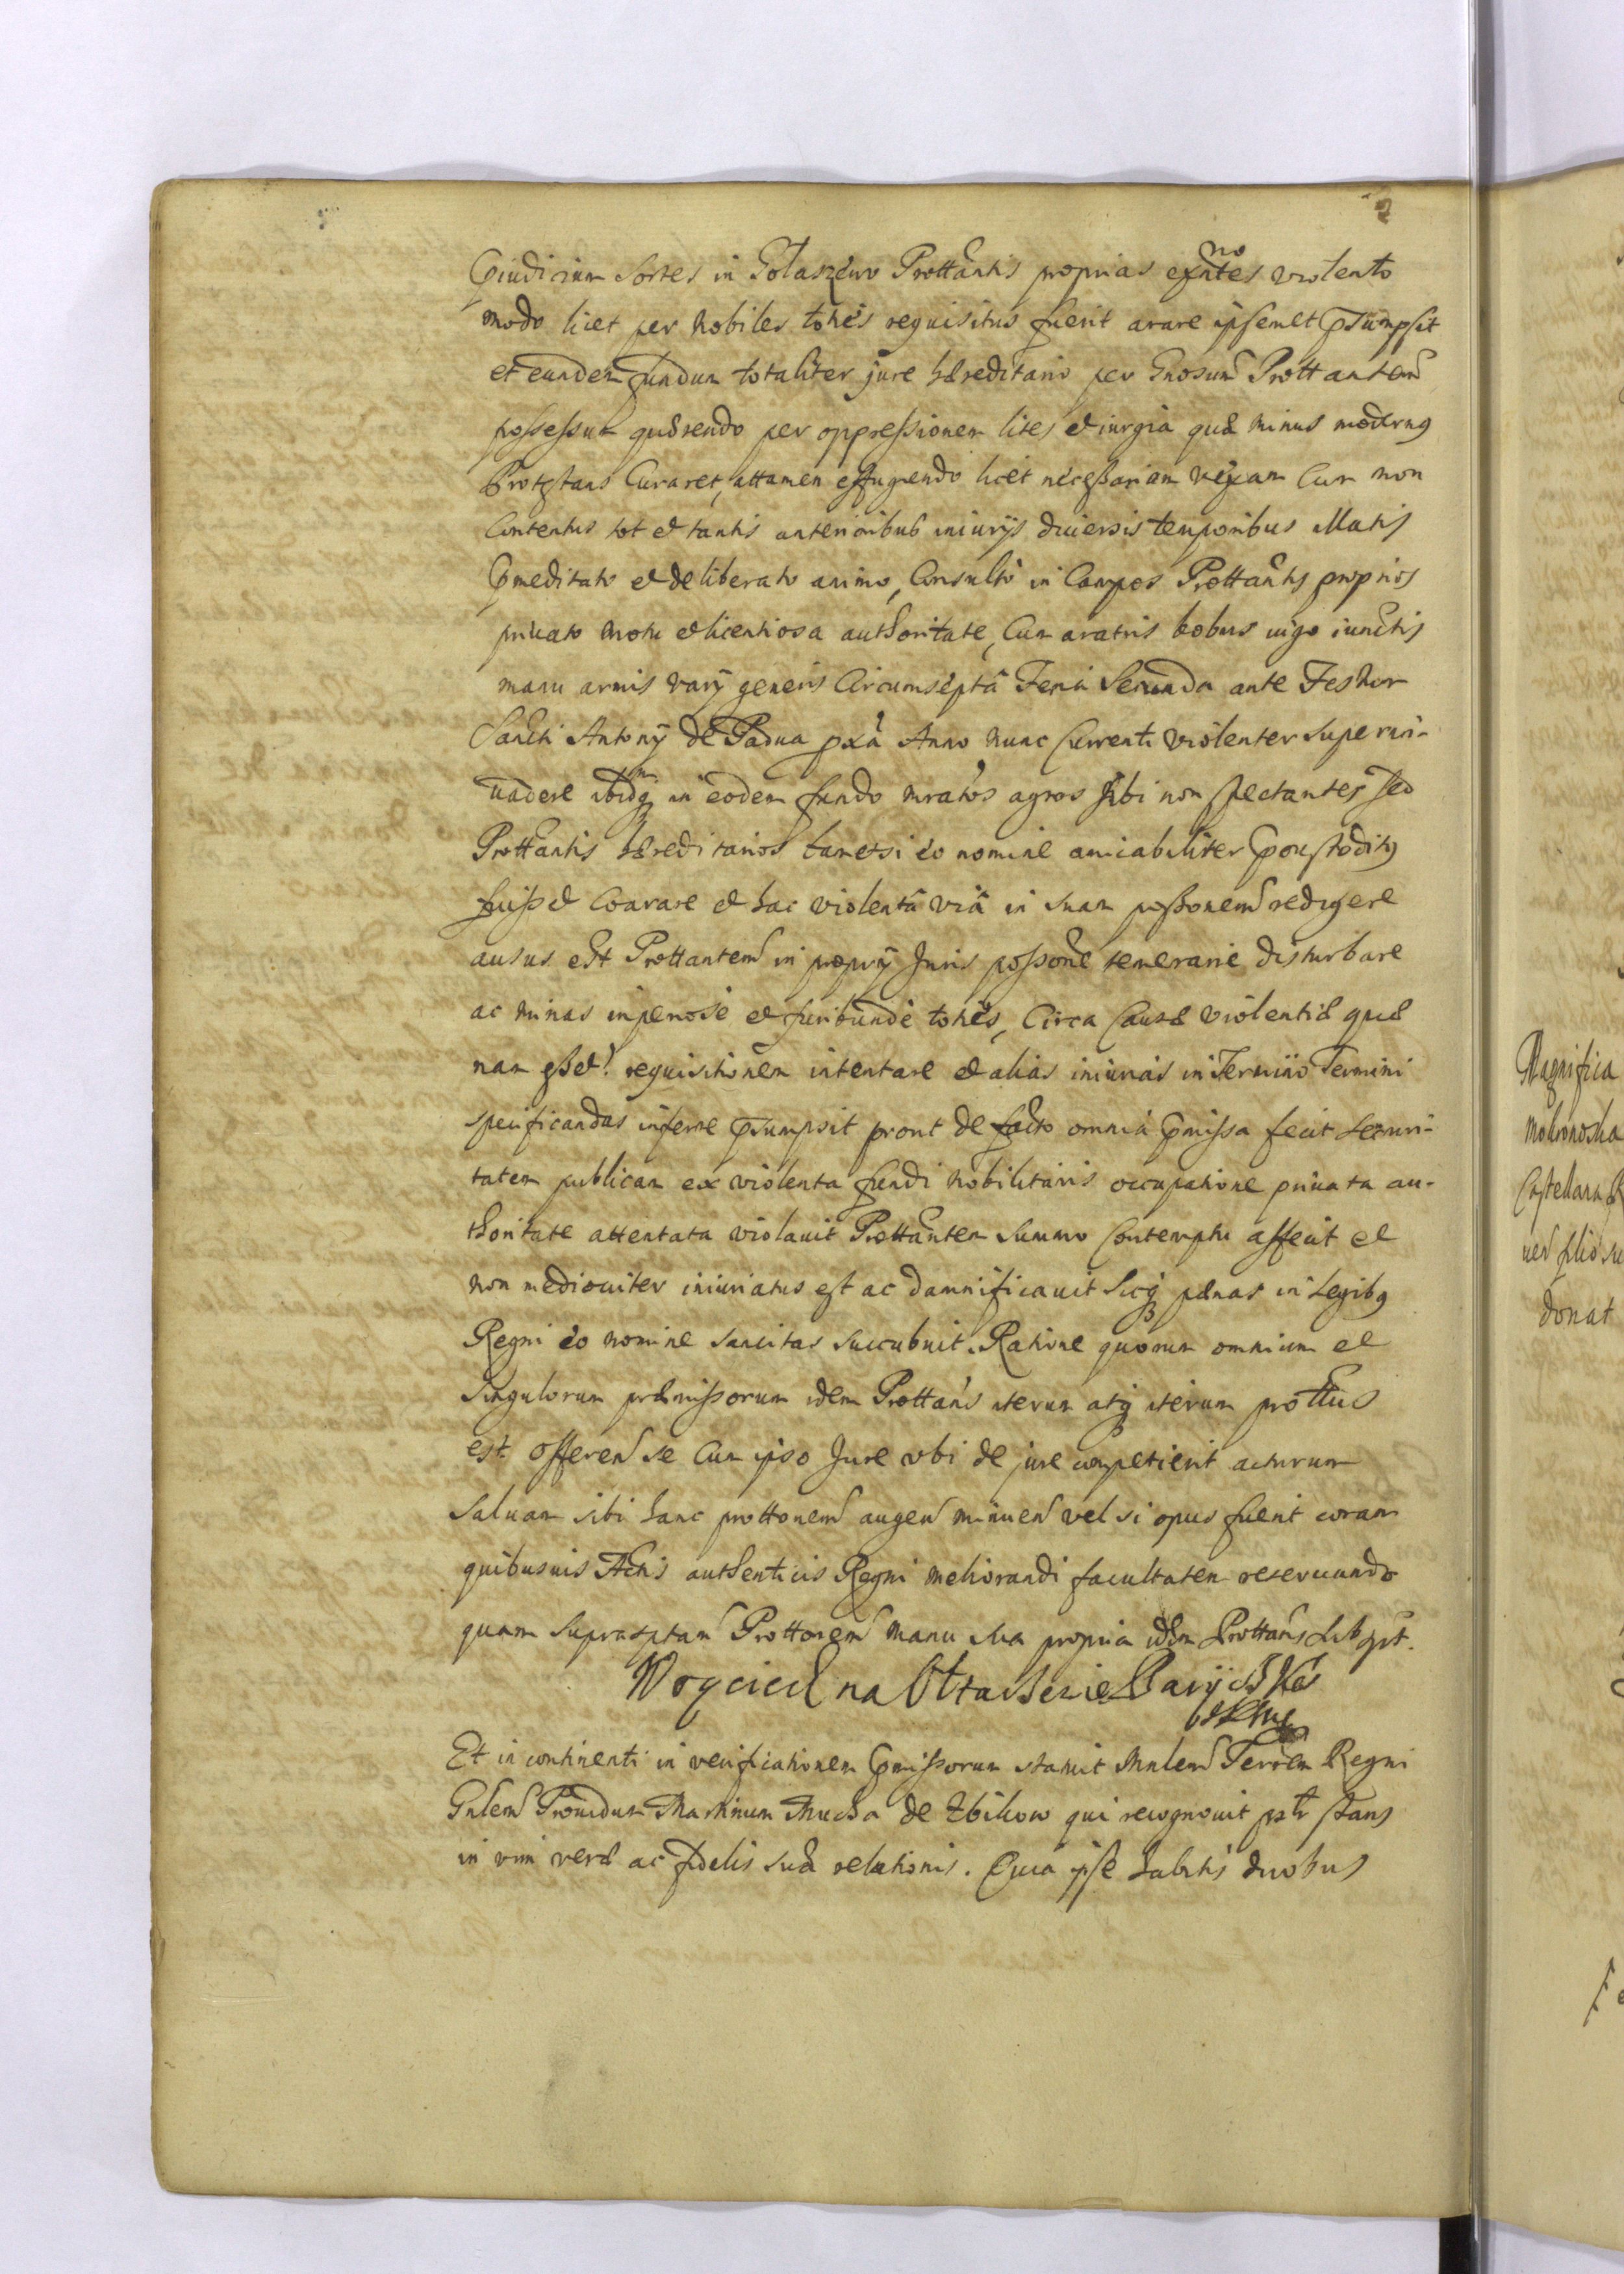 Pjudicium sortes in Gołaszewo Prottantis proprias exntes violento
no
modo licet per nobiles toties requisitus fuerit arare ipsemet psumpsit
et eundem fundum totaliter jure hæreditario per Gnosum Prottantem
possessum quærendo per oppressionem lites et iurgia quæ minus modernus
Protestans Curaret, attamen effugiendo licet necessariam vexam Cum non
Contentus tot et tantis anterioribus iniurijs diuersis temporibus illatis
Pmeditato et deliberato animo, Consulto in Campos Prottantis proprios
priuato motu et licentiosa authoritate, Cum aratris bobus iugo iunctis
manu armis varij generis Circumsepta Feria Secunda ante Festum
Sancti Antonij de Padua pxa Anno nunc Currenti violenter superin-
uadere ibidq in eodem fundo mratos agros sibi non spectantes sed
Prottantis hæreditarios tametsi eo nomine amicabiliter
fuisset Coarare et hac violentâ viâ in suam possonem redigere
ausus est Prottantem in proprij Juris possone temerarie disturbare
ac minas imperiose et furibunde toties, Circa Causæ violentiæ quæ
nam esset? requisitionem intentare et alias iniurias in Termino Termini
specificandas inferre psumpsit prout de facto omnia pmissa fecit securi-
tatem publicam ex violenta fundi nobilitaris occupatione priuata au-
thoritate attentata violauit Prottantem summo Contemptu affecit et
non mediocriter iniuriatus est ac damnificauit sicq pænas in Legibus
Regni eo nomine sancitas succubuit. Ratione quorum omnium et
singulorum præmissorum idem Prottans iterum atq iterum prottus
est offeren se Cum ipso Jure vbi de jure competierit acturum
saluam sibi hanc prottonem augen minuen vel si opus fuerit coram
quibusuis Actis authenticis Regni meliorandi facultatem reseruando
quam suprasptam Prottonem manu sua propria idem Prottans subspt.
Woyciech na
Et in continenti in verificationem pmissorum statuit Mnlem Terrem Regni
Gnlem Prouidum Martinum Mucha de Zbikow qui recognouit pstr stans
in vim veræ ac fidelis suæ relationis. Quia ipse habitis duobus
Magnifica
Mokronoska
Castellana
donat